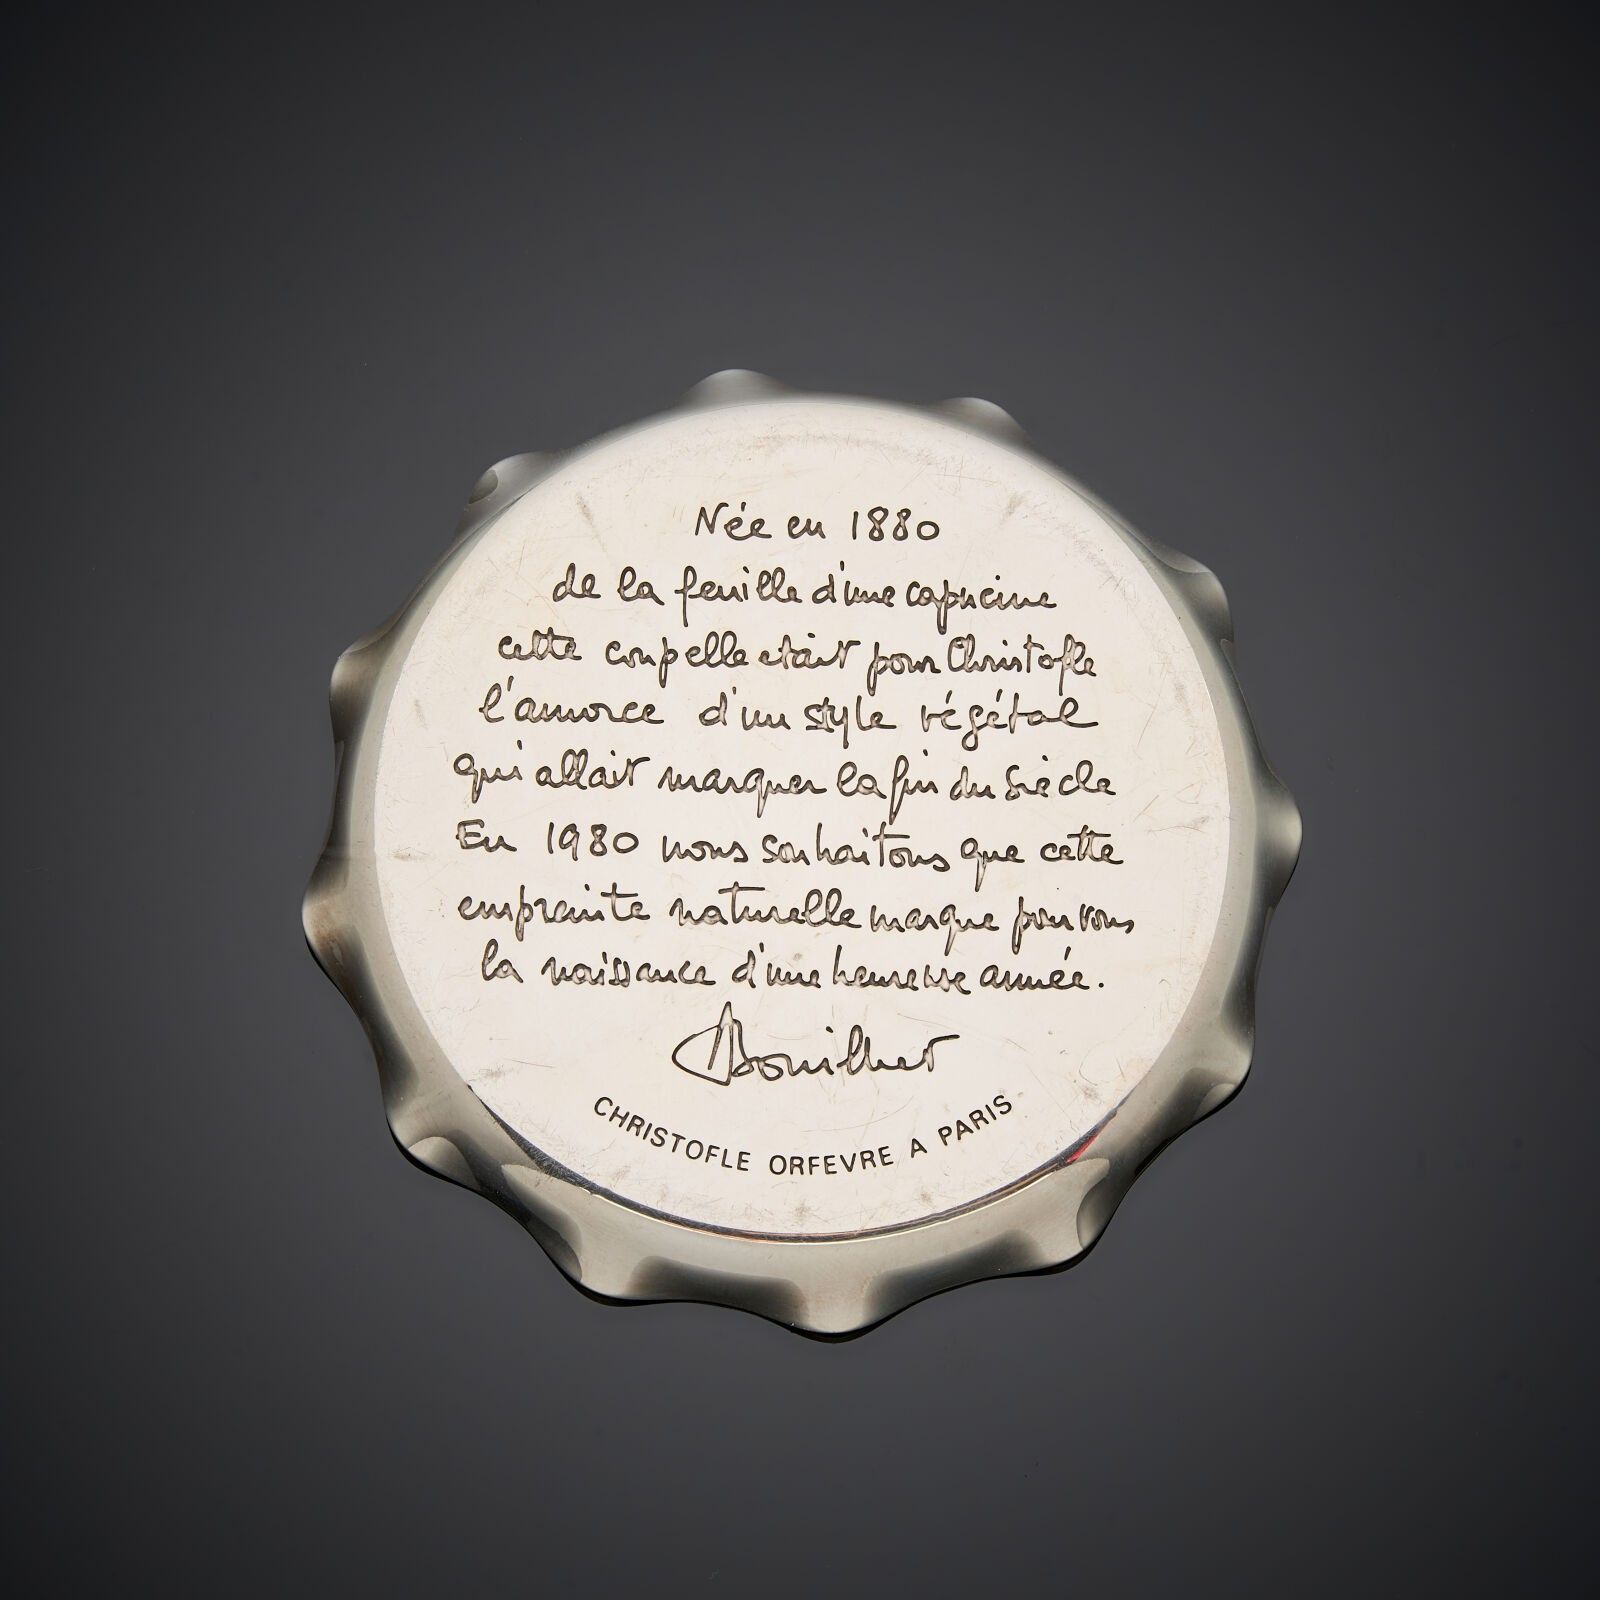 Née en 1880
de la feuille d'une capucine
cette coupelle etait pour Christofle
l'amorce d'un style végétal
qui allait marquer la fin du siècle
En 1980 nous souhaitons que cette
empreinte naturelle marque pour vous
la naissance d'une heureuse année.
Bouilhet
CHRISTOFLE ORFEVRE A PARIS